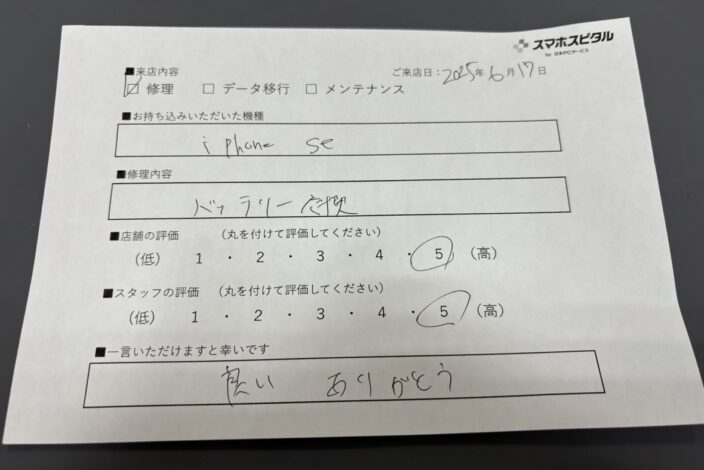 スマホスピタル
by 日本PCサービス
■来店内容
ご来店日：2025年6月17日
☑ 修理 □ データ移行 □ メンテナンス
■お持ち込みいただいた機種
iphone se
■修理内容
バッテリー交換
■店舗の評価 （丸を付けて評価してください）
（低） 1 ・ 2 ・ 3 ・ 4 ・ 5 （高）
■スタッフの評価 （丸を付けて評価してください）
（低） 1 ・ 2 ・ 3 ・ 4 ・ 5 （高）
■一言いただけますと幸いです
良い ありがとう